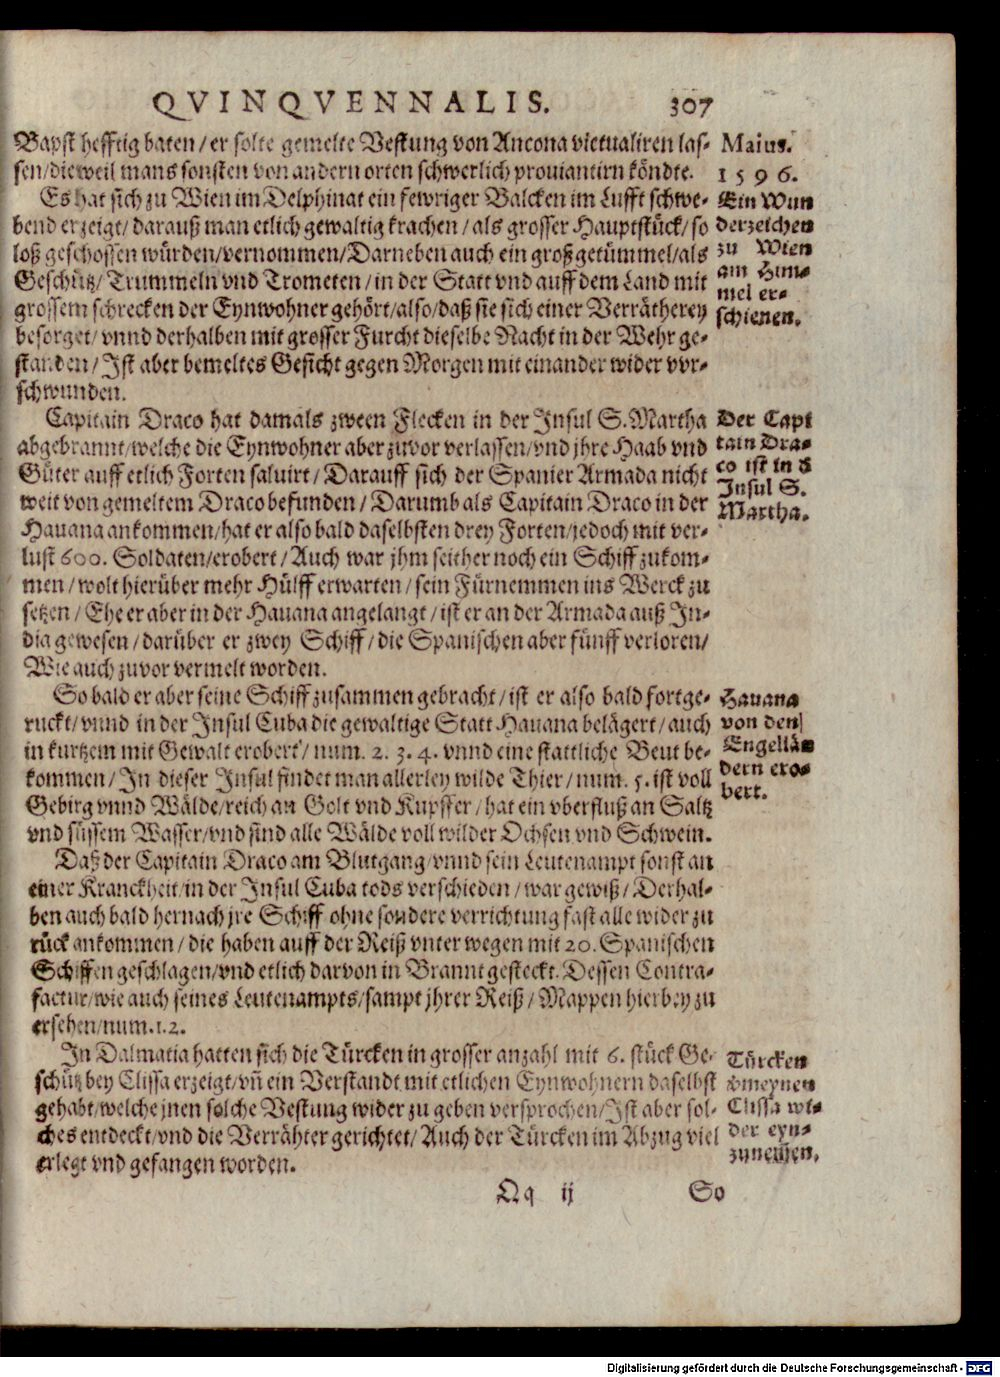 QVINQVENNALIS. 307
Bapst hefftig baten / er solte gemelte Vestung von Ancona victualiren las-
sen / dieweil mans sonsten von andern orten schwerlich prouiantirn köndte.
Maius.
1596.
Es hat sich zu Wien im Delphinat ein fewriger Balcken im Lufft schwe-
bend erzeigt / darauß man etlich gewaltig krachen / als grosser Hauptstück / so
loß geschossen würden / vernommen / Darneben auch ein groß getümmel / als
Geschütz / Trummeln vnd Trometen / in der Statt vnd auff dem Land mit
grossem schrecken der Eynwohner gehört / also / daß sie sich einer Verrätherey
besorget / vnnd derhalben mit grosser Furcht dieselbe Nacht in der Wehr ge-
standen / Ist aber bemeltes Gesicht gegen Morgen mit einander wider vor-
schwunden.
Ein Wun
derzeichen
zu Wien
am Him-
mel er-
schienen.
Capitain Draco hat damals zween Flecken in der Insul S. Martha
abgebrannt / welche die Eynwohner aber zuvor verlassen / vnd jhre Haab vnd
Güter auff etlich Forten saluirt / Darauff sich der Spanier Armada nicht
weit von gemeltem Draco befunden / Darumb als Capitain Draco in der
Hauana ankommen / hat er also bald daselbsten drey Forten / jedoch mit ver-
lust 600. Soldaten / erobert / Auch war jhm seither noch ein Schiff zukom-
men / wolt hierüber mehr Hülff erwarten / sein Fürnemmen ins Werck zu
setzen / Ehe er aber in der Hauana angelangt / ist er an der Armada auß In-
dia gewesen / darüber er zwey Schiff / die Spanischen aber fünff verloren /
Wie auch zuvor vermelt worden.
Der Capi
tain Dra-
co ist in d
Insul S.
Martha.
So bald er aber seine Schiff zusammen gebracht / ist er also bald fortge-
ruckt / vnnd in der Insul Cuba die gewaltige Statt Hauana belägert / auch
in kurtzem mit Gewalt erobert / num. 2. 3. 4. vnnd eine stattliche Beut be-
kommen / In dieser Insul findet man allerley wilde Thier / num. 5. ist voll
Gebirg vnnd Wälde / reich an Golt vnd Kupffer / hat ein vberfluß an Saltz
vnd süssem Wasser / vnd sind alle Wälde voll wilder Ochsen vnd Schwein.
Hauana
von den
Engellän
dern ero-
bert.
Daß der Capitain Draco am Blutgang / vnnd sein Leutenampt sonst an
einer Kranckheit / in der Insul Cuba tods verschieden / war gewiß / Derhal-
ben auch bald hernach jre Schiff ohne sondere verrichtung fast alle wider zu
rück ankommen / die haben auff der Reiß vnter wegen mit 20. Spanischen
Schiffen geschlagen / vnd etlich darvon in Brannt gesteckt. Dessen Contra-
factur / wie auch seines Leutenampts / sampt jhrer Reiß / Mappen hierbey zu
ersehen / num. 1. 2.
In Dalmatia hatten sich die Türcken in grosser anzahl mit 6. stück Ge-
schütz bey Clissa erzeigt / vñ ein Verstandt mit etlichen Eynwohnern daselbst
gehabt / welche jnen solche Vestung wider zu geben versprochen / Ist aber sol-
ches entdeckt / vnd die Verrähter gerichtet / Auch der Türcken im Abzug viel
erlegt vnd gefangen worden.
Türcken
vmeynen
Clissa wi-
der eyn-
zunemen.
Qq ij So
Digitalisierung gefördert durch die Deutsche Forschungsgemeinschaft - DFG